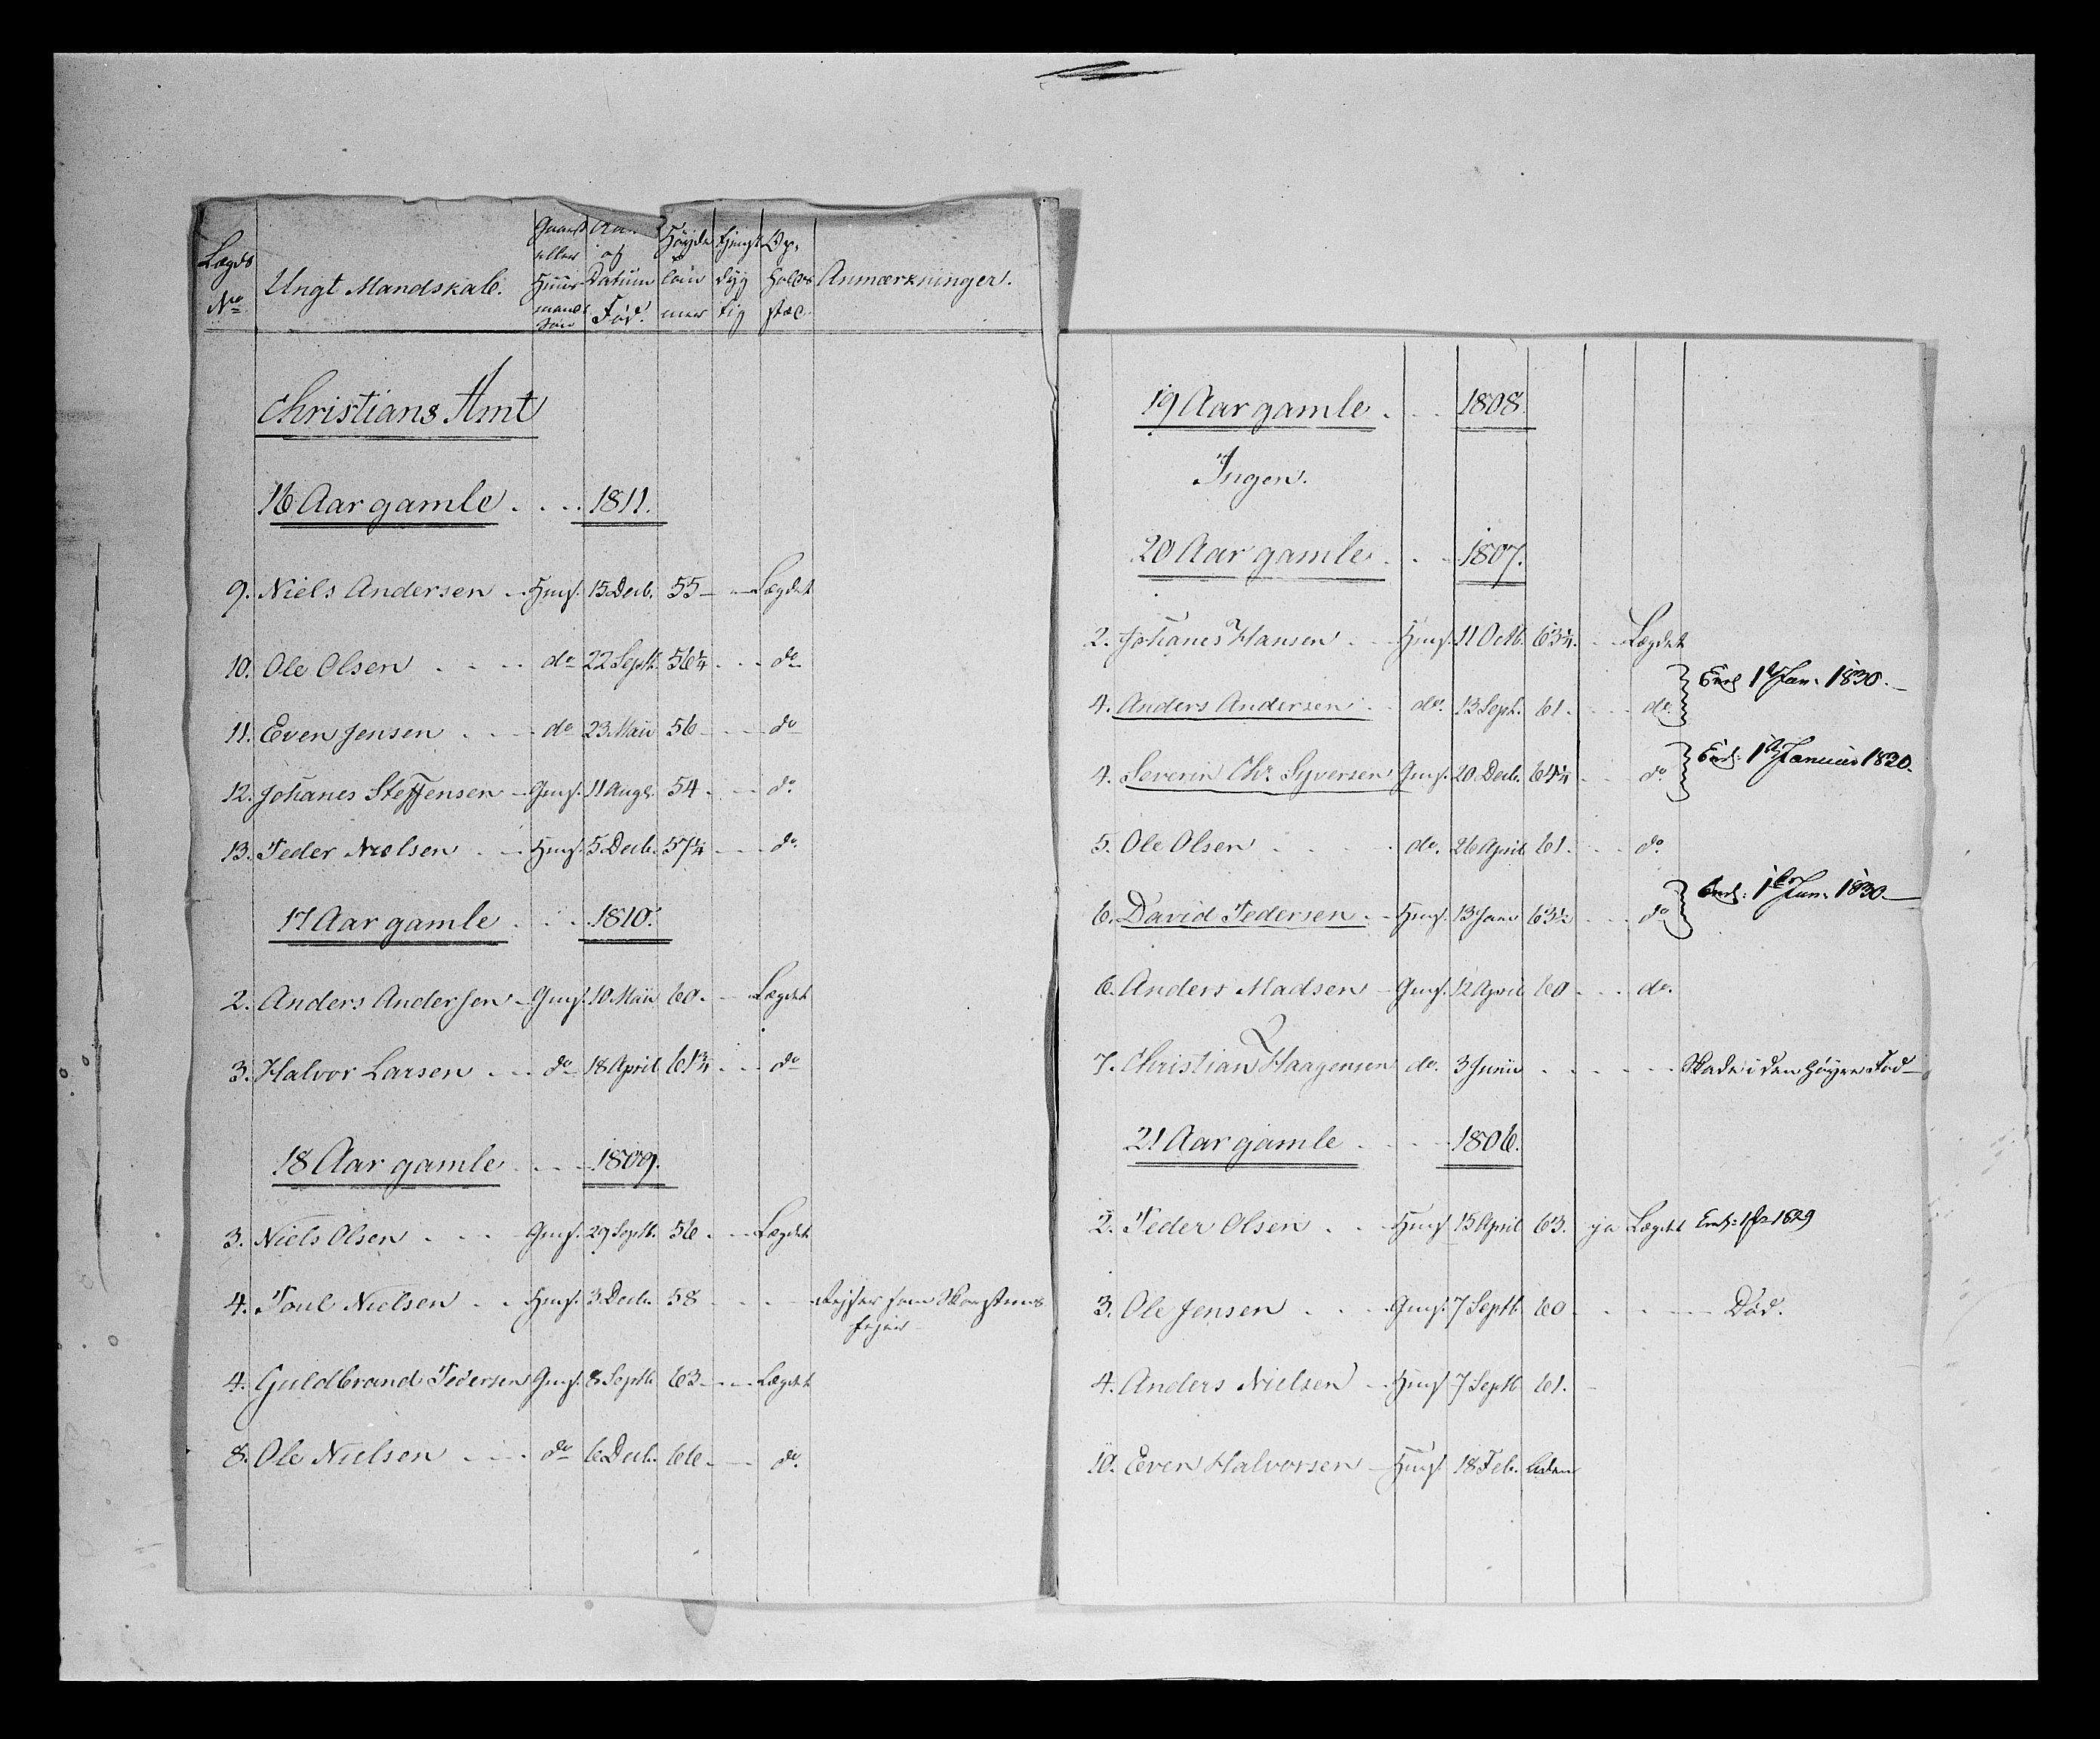 Lægds No | Ungt Mandskab. | Gaard eller Huus mands Søn | Aar og Datum Fød. | Høyde tom mer | tjenst dyg tig | Op, holds stæd. | Anmærkninger.
Christians Amt
16 Aar gamle . . . 1811.
9. Niels Andersen . . Hmf. 15 Decb. 55 — — Lægdet
10. Ole Olsen . . . do 22 Septb. 56¼ . . . do
11. Even Jensen . . . do 23 Maii 56 . . . do
12. Johanes Steffensen — Gmf. 11 Augs. 54 . . . do
13. Peder Nielsen . . Hmf. 5 Decb. 57¼ . . . do
17 Aar gamle . . . 1810.
2. Anders Andersen — Gmf. 10 Maii 60. — Lægdet
3. Halvor Larsen . . . do 18 April 61¾ . . . do
18 Aar gamle . . . 1809.
3. Niels Olsen . . . Gmf. 29 Septb. 56 . . . Lægdet
4. Poul Nielsen . . Hmf. 3 Decb. 58 . . . Rejser som Skorsteens
fejer
4. Guldbrand Pedersen Gmf. 8 Septb. 63 . . . Lægdet
8. Ole Nielsen . . . do 6 Decb. 66 . . . do.
19 Aar gamle . . . 1808.
Ingen.
20 Aar gamle . . . 1807.
2. Johanes Hansen . . Hmf. 11 Octb. 63¼. . . Lægdet
4. Anders Andersen . . do. 13 Sept. 61. . . . do. Enrl 1te Jan. 1830.
4. Severin Chr. Syversen Gmf. 20 Decb. 64¼ . . . do Enrl: 1te Januar 1830.
5. Ole Olsen . . . . do. 26 April 61. . . . do.
6. David Pedersen . . Hmf. 13 Janv 63½ . . . do Enrl: 1te Jan. 1830
6. Anders Madsen — Gmf. 12 April 60 . . . do.
7. Christian Haagensen do. 3 Junii . . . . . Skade i den høyre Fod
21 Aar gamle . . . 1806.
2. Peder Olsen . . . Hmf 15 April 63. ja Lægdet Enrl: 1 Ja 1829
3. Ole Jensen . . . Gmf. 7 Septb. 60 . . . . Död.
4. Anders Nielsen . . Hmf 7 Septb 61. —
10. Even Halvorsen — Hmf 18 Feb.